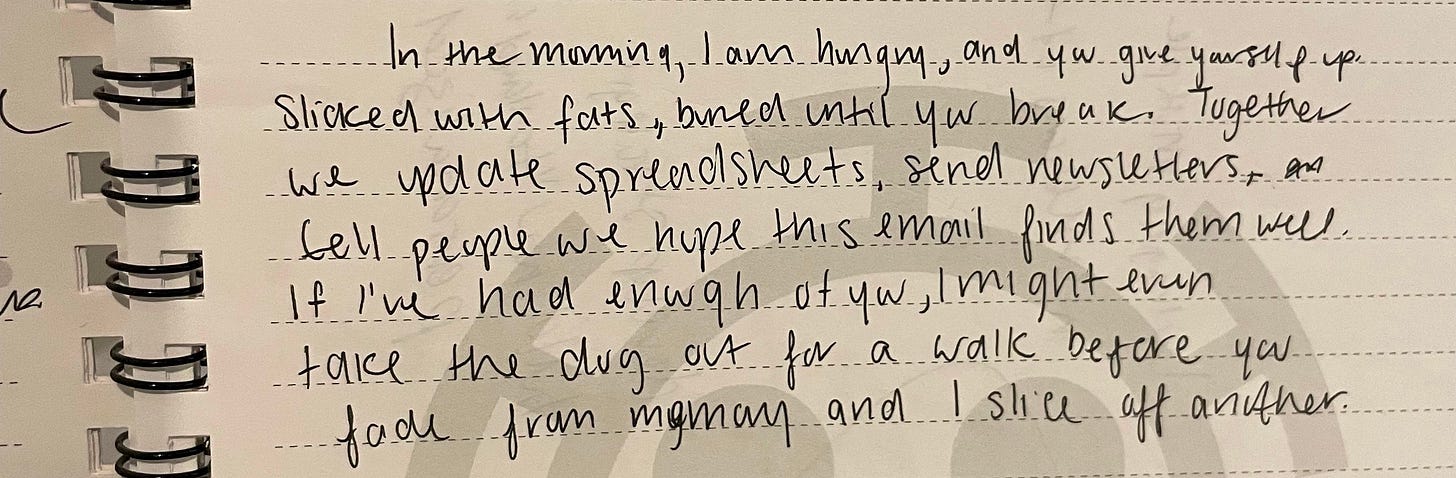 In the morning, I am hungry, and you give yourself up.
Slicked with fats, buried until you break. Together
we update spreadsheets, send newsletters,
tell people we hope this email finds them well.
If I've had enough of you, I might even
take the dog out for a walk before you
fade from memory and I slice off another.